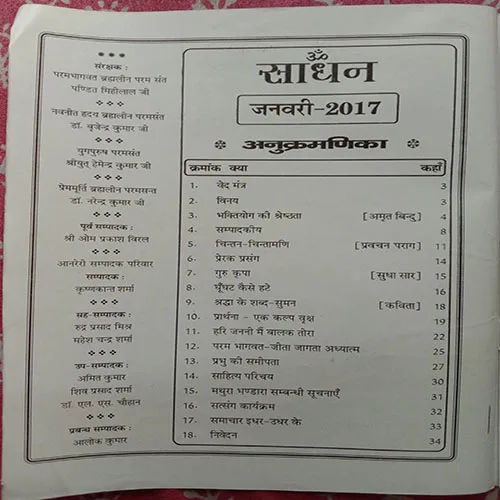 संरक्षक :
परमभागवत ब्रह्मलीन परम संत
पण्डित मिहीलाल जी
नवनीत हृदय ब्रह्मलीन परमसंत
डॉ. बृजेन्द्र कुमार जी
युगपुरुष परमसंत
श्रीयुत् हेमेन्द्र कुमार जी
प्रेममूर्ति ब्रह्मलीन परमसन्त
डॉ. नरेन्द्र कुमार जी
पूर्व सम्पादक :
श्री ओम प्रकाश विरल
आनरेरी सम्पादक परिवार
सम्पादक :
कृष्णकान्त शर्मा
सह-सम्पादक :
रुद्र प्रसाद मिश्र
महेश चन्द्र शर्मा
उप-सम्पादक :
अमित कुमार
शिव प्रसाद शर्मा
डॉ. एल. एस. चौहान
प्रबन्ध सम्पादक :
आलोक कुमार
ॐ
साधन
जनवरी-2017
अनुक्रमणिका
क्रमांक क्या कहाँ
1. वेद मंत्र 3
2. विनय 3
3. भक्तियोग की श्रेष्ठता [अमृत बिन्दु] 4
4. सम्पादकीय 8
5. चिन्तन-चिन्तामणि [प्रवचन पराग] 11
6. प्रेरक प्रसंग 14
7. गुरु कृपा [सुधा सार] 15
8. घूँघट कैसे हटे 16
9. श्रद्धा के शब्द-सुमन [कविता] 18
10. प्रार्थना - एक कल्प वृक्ष 19
11. हरि जननी मैं बालक तोरा 22
12. परम भागवत-जीता जागता अध्यात्म 25
13. प्रभु की समीपता 27
14. साहित्य परिचय 30
15. मथुरा भण्डारा सम्बन्धी सूचनाएँ 31
16. सत्संग कार्यक्रम 32
17. समाचार इधर-उधर के 33
18. निवेदन 34